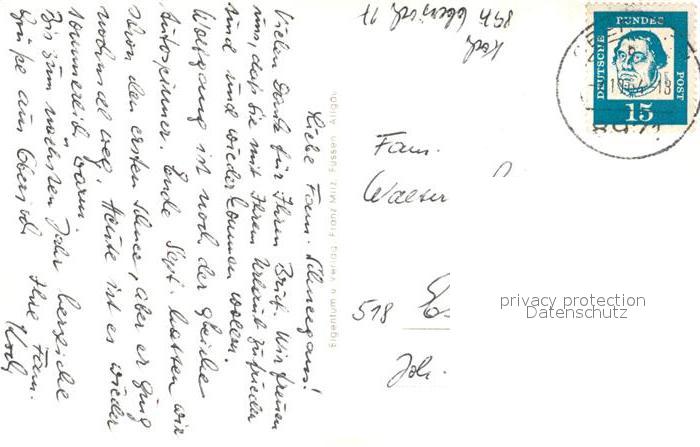 Liebe Fam. Schneegans!
Vielen Dank für Ihren Brief. Wir freuen
uns, daß Sie mit Ihrem Urlaub zufrieden
sind und wieder kommen wollen.
Wolfgang ist noch der gleiche
Autospinner. Ende Sept. hatten wir
schon den ersten Schnee, aber er ging
nochmal weg. Heute ist es wieder
sommerlich warm.
Bis zum nächsten Jahr herzliche
Grüße aus Obersich Ihre Fam.
Koch
Eigentum u. Verlag Franz Milz, Füssen Allgäu
Koch
DEUTSCHE BUNDES POST
15
8971
Fam.
Walter
518
Joh.
privacy protection
Datenschutz